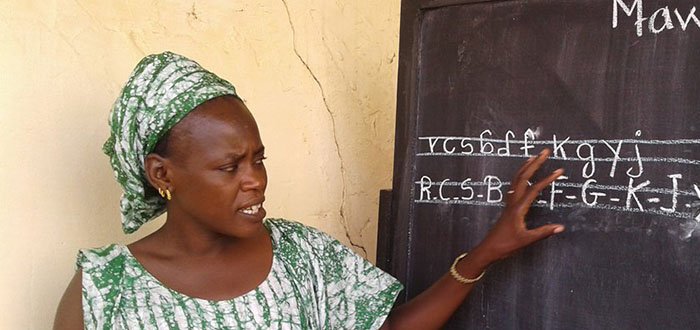 Maw
rcsɓdf kgyj
R-C-S-B- -F-G-K-J-